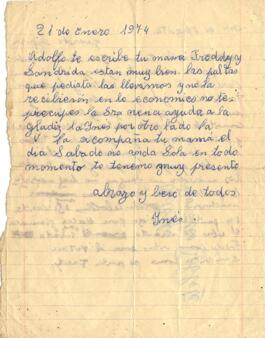 21 de Enero 1974
Adolfo te escribe tu mama Freddy y
Sandrada estan muy bien las paltas
que pediata las llevamos y no la
recibieron en lo economico no te
preocupes la Sra nena ayuda a la
Gladiz la Ines por otro lado la
V. la acompaña tu mama el
dia Sabado no anda Sola en todo
momento te tenemo muy presente
abrazo y beso de todos
Ines.